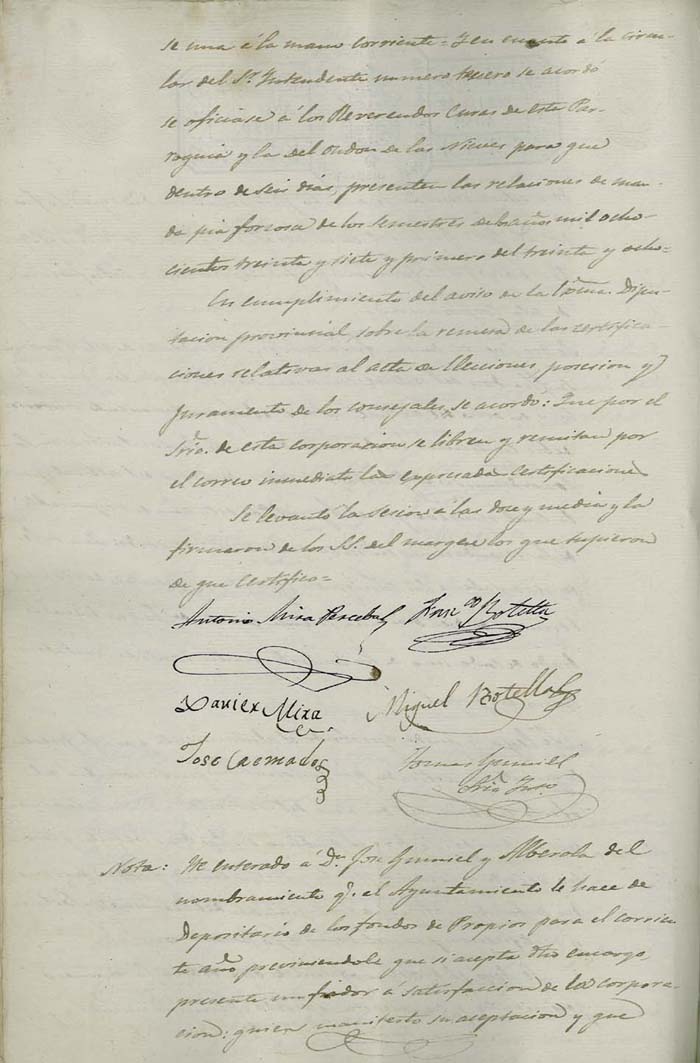 se una á la mano corriente = Y en cuanto á la circu-
lar del Sr. Intendente numero tercero se acordó
se oficiase á los Reverendos Curas de esta Par-
roquia y la del Ondon de las Nieves para que
dentro de seis dias, presenten las relaciones de man-
da pia forzosa de los semestres del año mil ocho-
cientos treinta y siete y primero del treinta y ocho-
En cumplimiento del aviso de la Exma. Dipu-
tacion provincial, sobre la remesa de las certifica-
ciones relativas al acta de Elecciones, posesion y
Juramento de los consejales, se acordo: Que por el
Srio. de esta corporacion se libren y remitan por
el correo inmediato la expresada Certificacion
Se levantó la sesion á las doce y media y la
firmaron de los SS. del margen los que supieron
de que Certifico =
Antonio Mira Perceval Franco Botella
Xavier Mira Miguel Botella
Jose Cremades Tomas Gumiel
Srio
Nota: He enterado á Dn. Jose Gumiel y Alberola del
nombramiento q. el Ayuntamiento le hace de
Depositario de los fondos de Propios para el corrien-
te año previniendole que si acepta dho encargo,
presente un fiador á satisfaccion de la corpora-
cion: quien manifesto su aceptacion y que